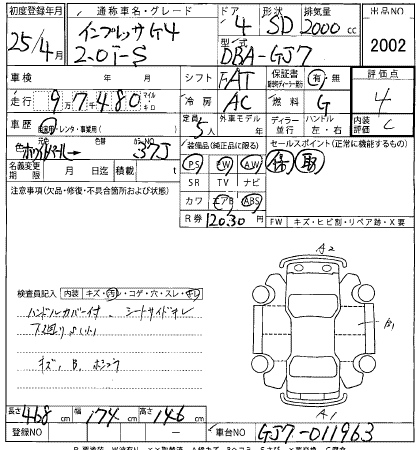 初度登録年月 通称車名・グレード ドア 形状 排気量 出品NO
25/4月 インプレッサG4 2.0i-S 4 SD 2000 cc 2002
型式
DBA-GJ7
車検 年 月 シフト FAT 保証書 有・無 評価点
走行 97,480 マイル キロ 冷房 AC 燃料 G 4
車歴 自家用・レンタ・事業用( ) 定員 5人 外車モデル 年 ディーラー 並行 ハンドル 左・右 内装 C
色 元色 ホワイトパール 色替 カラーNO 37J 装備品(純正品に限る) セールスポイント(正常に機能するもの)
PS PW AW 保 取
名義変更期限 月 日迄 積載 t SR TV ナビ
注意事項(欠品・修復・不具合箇所および状態) カワ エアB ABS
R券 12030円 FW キズ・ヒビ割・リペア跡・X要
検査員記入 内装 キズ・汚れ・コゲ・穴・スレ・
ハンドルカバー付 シートサイドキレ
キズ、B、
A2
A1
長さ 468 幅 174 高さ 146
登録NO ー 車台NO GJ7-011963